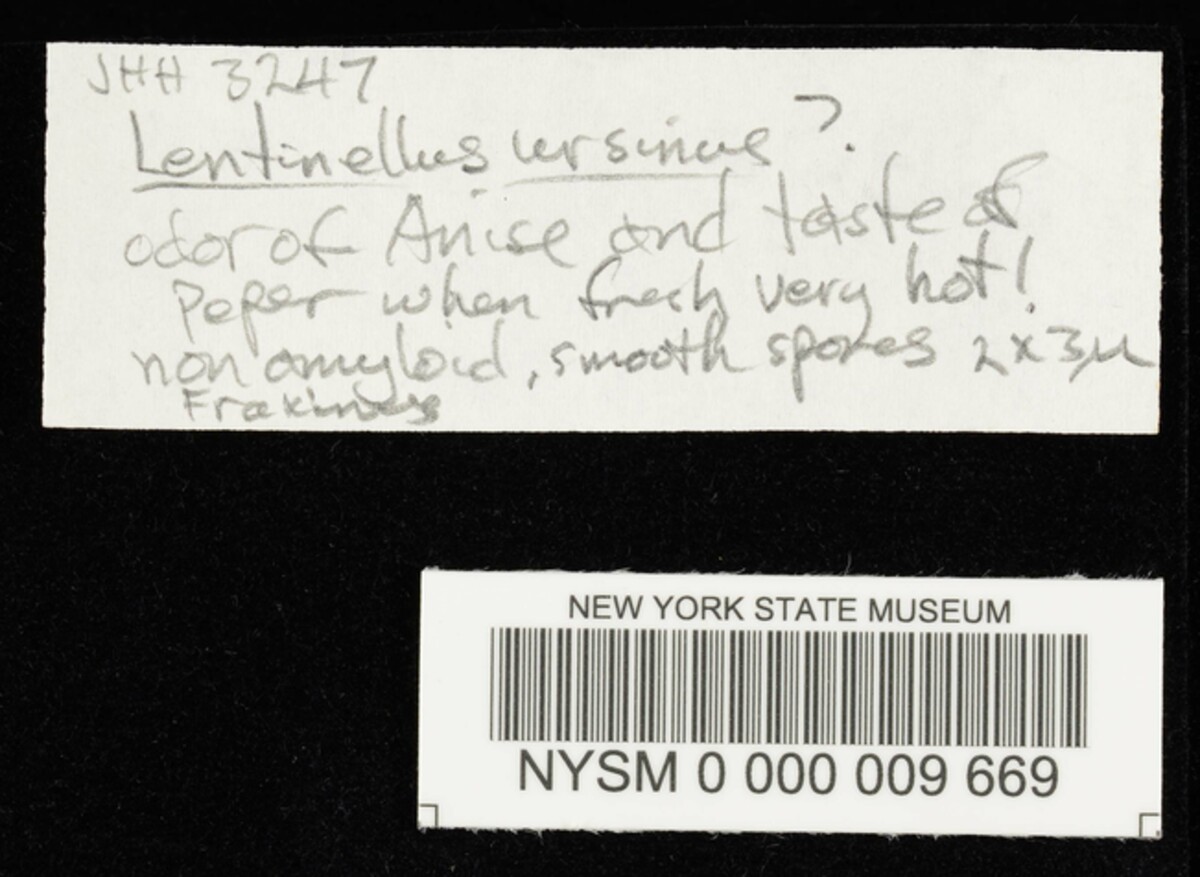 JHH 3247
Lentinellus ursinus ?.
odor of Anise and taste of
Peper when fresh very hot!
non amyloid, smooth spores 2 x 3 µ
Fraxinus
NEW YORK STATE MUSEUM
NYSM 0 000 009 669